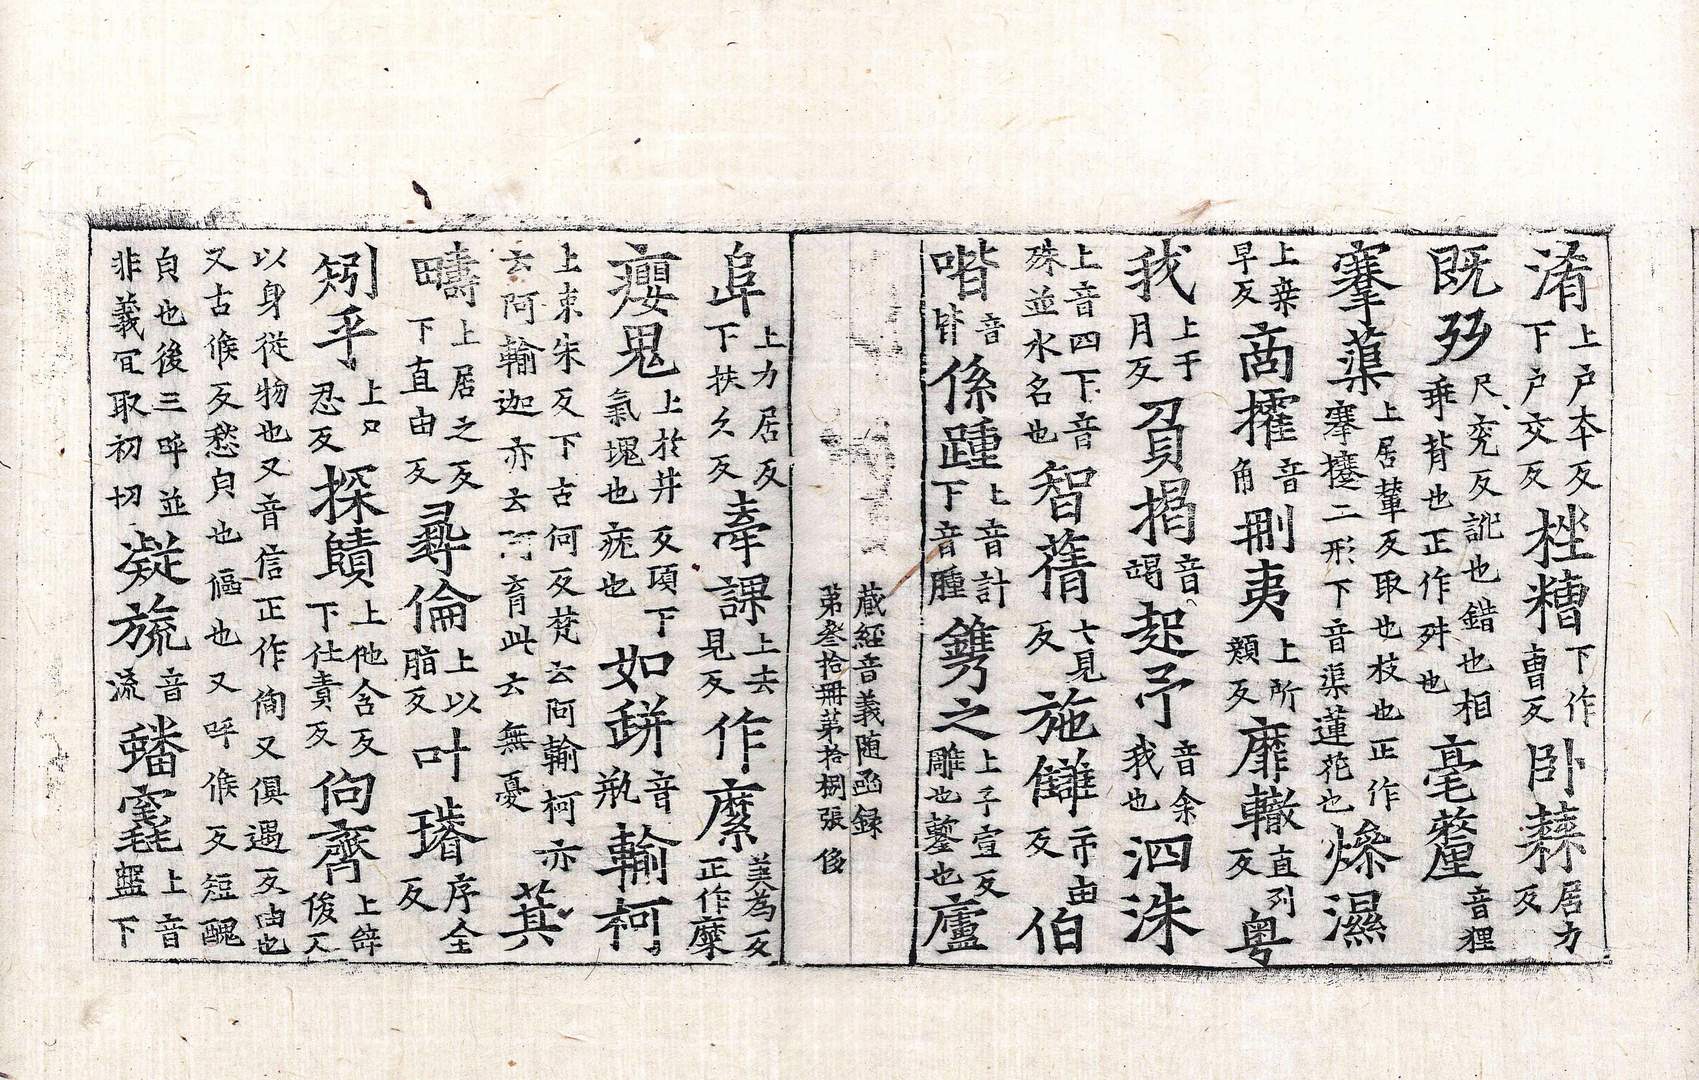 淆上户夲反下户交反桎糟下作曺反卧蕀居力反
既舛尺兖反訛也錯也相乖背也正作舛也毫釐音狸
搴蕖上居輦反取也枝也正作搴攓二形下音渠蓮花也燦濕
上桒早反商㩁音角刪夷上所顏反靡轍直列反粤
我上于月反負揭音竭起予音余我也泗洙
上音四下音殊並水名也智蒨七見反施讎市由反伯
喈音皆係踵上音計下音腫鐫之上子宣反雕也鏨也廬
藏經音義随函録
第叄拾冊苐拾捌張俊
阜上力居反下扶久反牽課上去見反作縻美為反正作糜
癭鬼上於井反項下氣塊也疣也如缾音瓶輸柯
上束朱反下古何反梵云阿輸柯亦云阿輸迦亦云阿育此云無憂萁
疇上居之反下直由反彛倫上以脂反叶璿序全反
矧乎上尸忍反探賾上他含反下仕責反佝齊上辝俊反
以身從物也又音信正作徇又俱遇反由也又古候反愁皃也傴也又呼候反短醜
皃也後三呼並非義冝取初切凝旒音流蟠㲲上音盤下